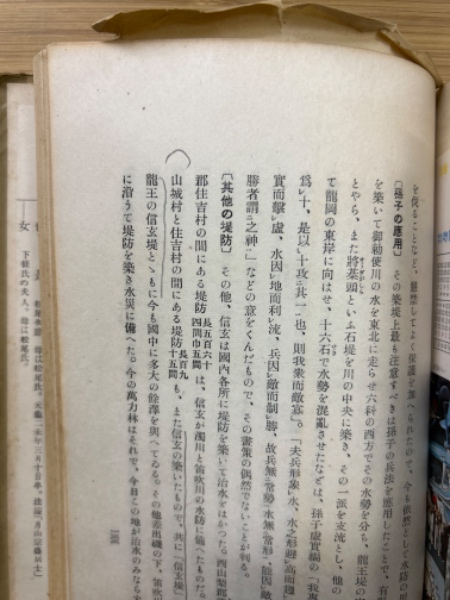 を伐ることなど、嚴禁してよく保護を加へられたので、今も依然として水防の用
〔孫子の應用〕　その築堤上最も注意すべきは孫子の兵法を應用したことで、有
を築いて御勅使川の水を東北に走らせ六科の西方でその水勢を分ち、龍王堤の
とやら、また將棊頭といふ石堤を川の中央に築き、その一派を支流とし、他の
て龍岡の東岸に向はせ、十六石で水勢を混亂させたなどは、孫子虛實編の「我專
爲レ十、是以レ十攻二其一一也、則我衆而敵寡」。「夫兵形象レ水、水之形避レ高而趨
實而擊レ虛、水因レ地而制レ流、兵因レ敵而制レ勝、故兵無二常勢一、水無二常形一、能因レ敵
勝者謂二之神一」などの意をくんだもので、その畫策の偶然でないことが判る。
〔其他の堤防〕　その他、信玄は國內各所に堤防を築いて治水をはかつた。西山梨郡
郡住吉村の間にある堤防長五百六十四間巾五間は、信玄が濁川と笛吹川の水防に備へたものだ。
山城村と住吉村の間にある堤防長百九十五間も、また信玄の築いたもので、共に「信玄堤」
龍王の信玄堤とゝもに今も國中に多大の餘澤を與へてゐる。その他差出磯の下、笛吹川
に沿うて堤防を築き水災に備へた。今の萬力林はそれで、今日この地が治水のみなら
女
下條氏の夫人。母は松尾氏。